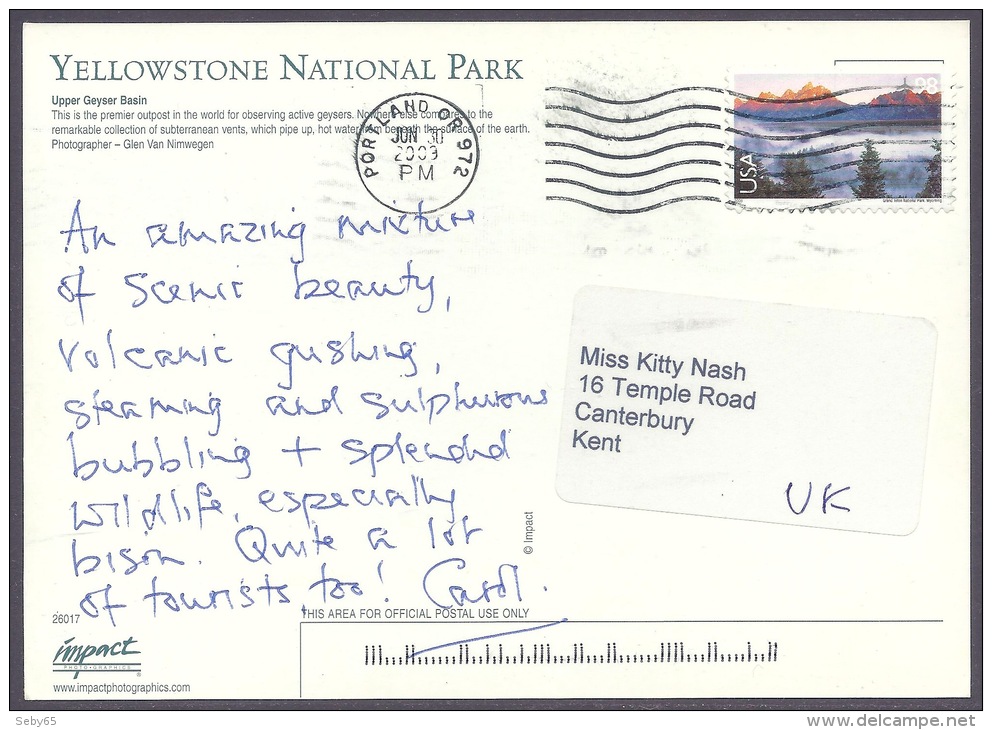 YELLOWSTONE NATIONAL PARK
Upper Geyser Basin
This is the premier outpost in the world for observing active geysers. Nowhere else compares to the
remarkable collection of subterranean vents, which pipe up, hot water from beneath the surface of the earth.
Photographer – Glen Van Nimwegen
PORTLAND OR 972
JUN 30
2009
PM
98
USA
An amazing mixture
of scenic beauty,
volcanic gushing,
steaming and sulphurous
bubbling + splendid
wildlife, especially
bison. Quite a lot
of tourists too! Carol.
Miss Kitty Nash
16 Temple Road
Canterbury
Kent
UK
© Impact
26017
THIS AREA FOR OFFICIAL POSTAL USE ONLY
impact
PHOTO·GRAPHICS
®
www.impactphotographics.com
Seby65
www.delcampe.net